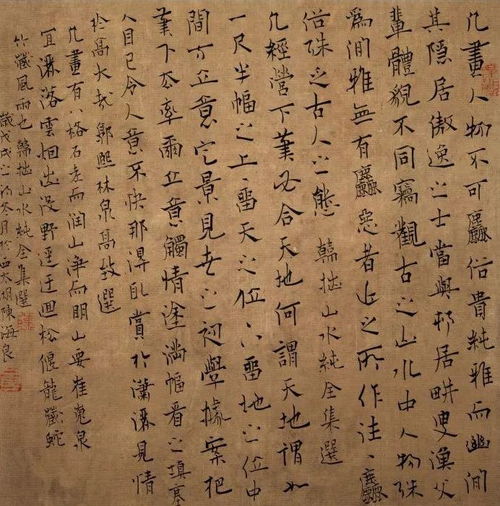 凡畫人物不可麤俗貴純雅而幽閒
其隱居傲逸之士當與邨居畊叟漁父
輩體貌不同竊觀古之山水中人物殊
為閒雅無有麤惡者近之所作往〻麤
俗殊乏古人之態 韓拙山水純全集選
凡經營下筆必合天地何謂天地謂如
一尺半幅之上留天之位下留地之位中
間方立意定景見世之初學據案把
筆下去率爾立意觸情塗滿幅看之填塞
人目已令人意不快那得取賞於瀟灑見情
於高大哉 郭熙林泉高致選
凡畫有八格石老而潤山淨而明山要崔嵬泉
宜灑落雲烟出没野逕迂迴松偃龍蛇
竹藏風雨也 韓拙山水純全集選
歲戊戌之初冬月於西太湖陳海良